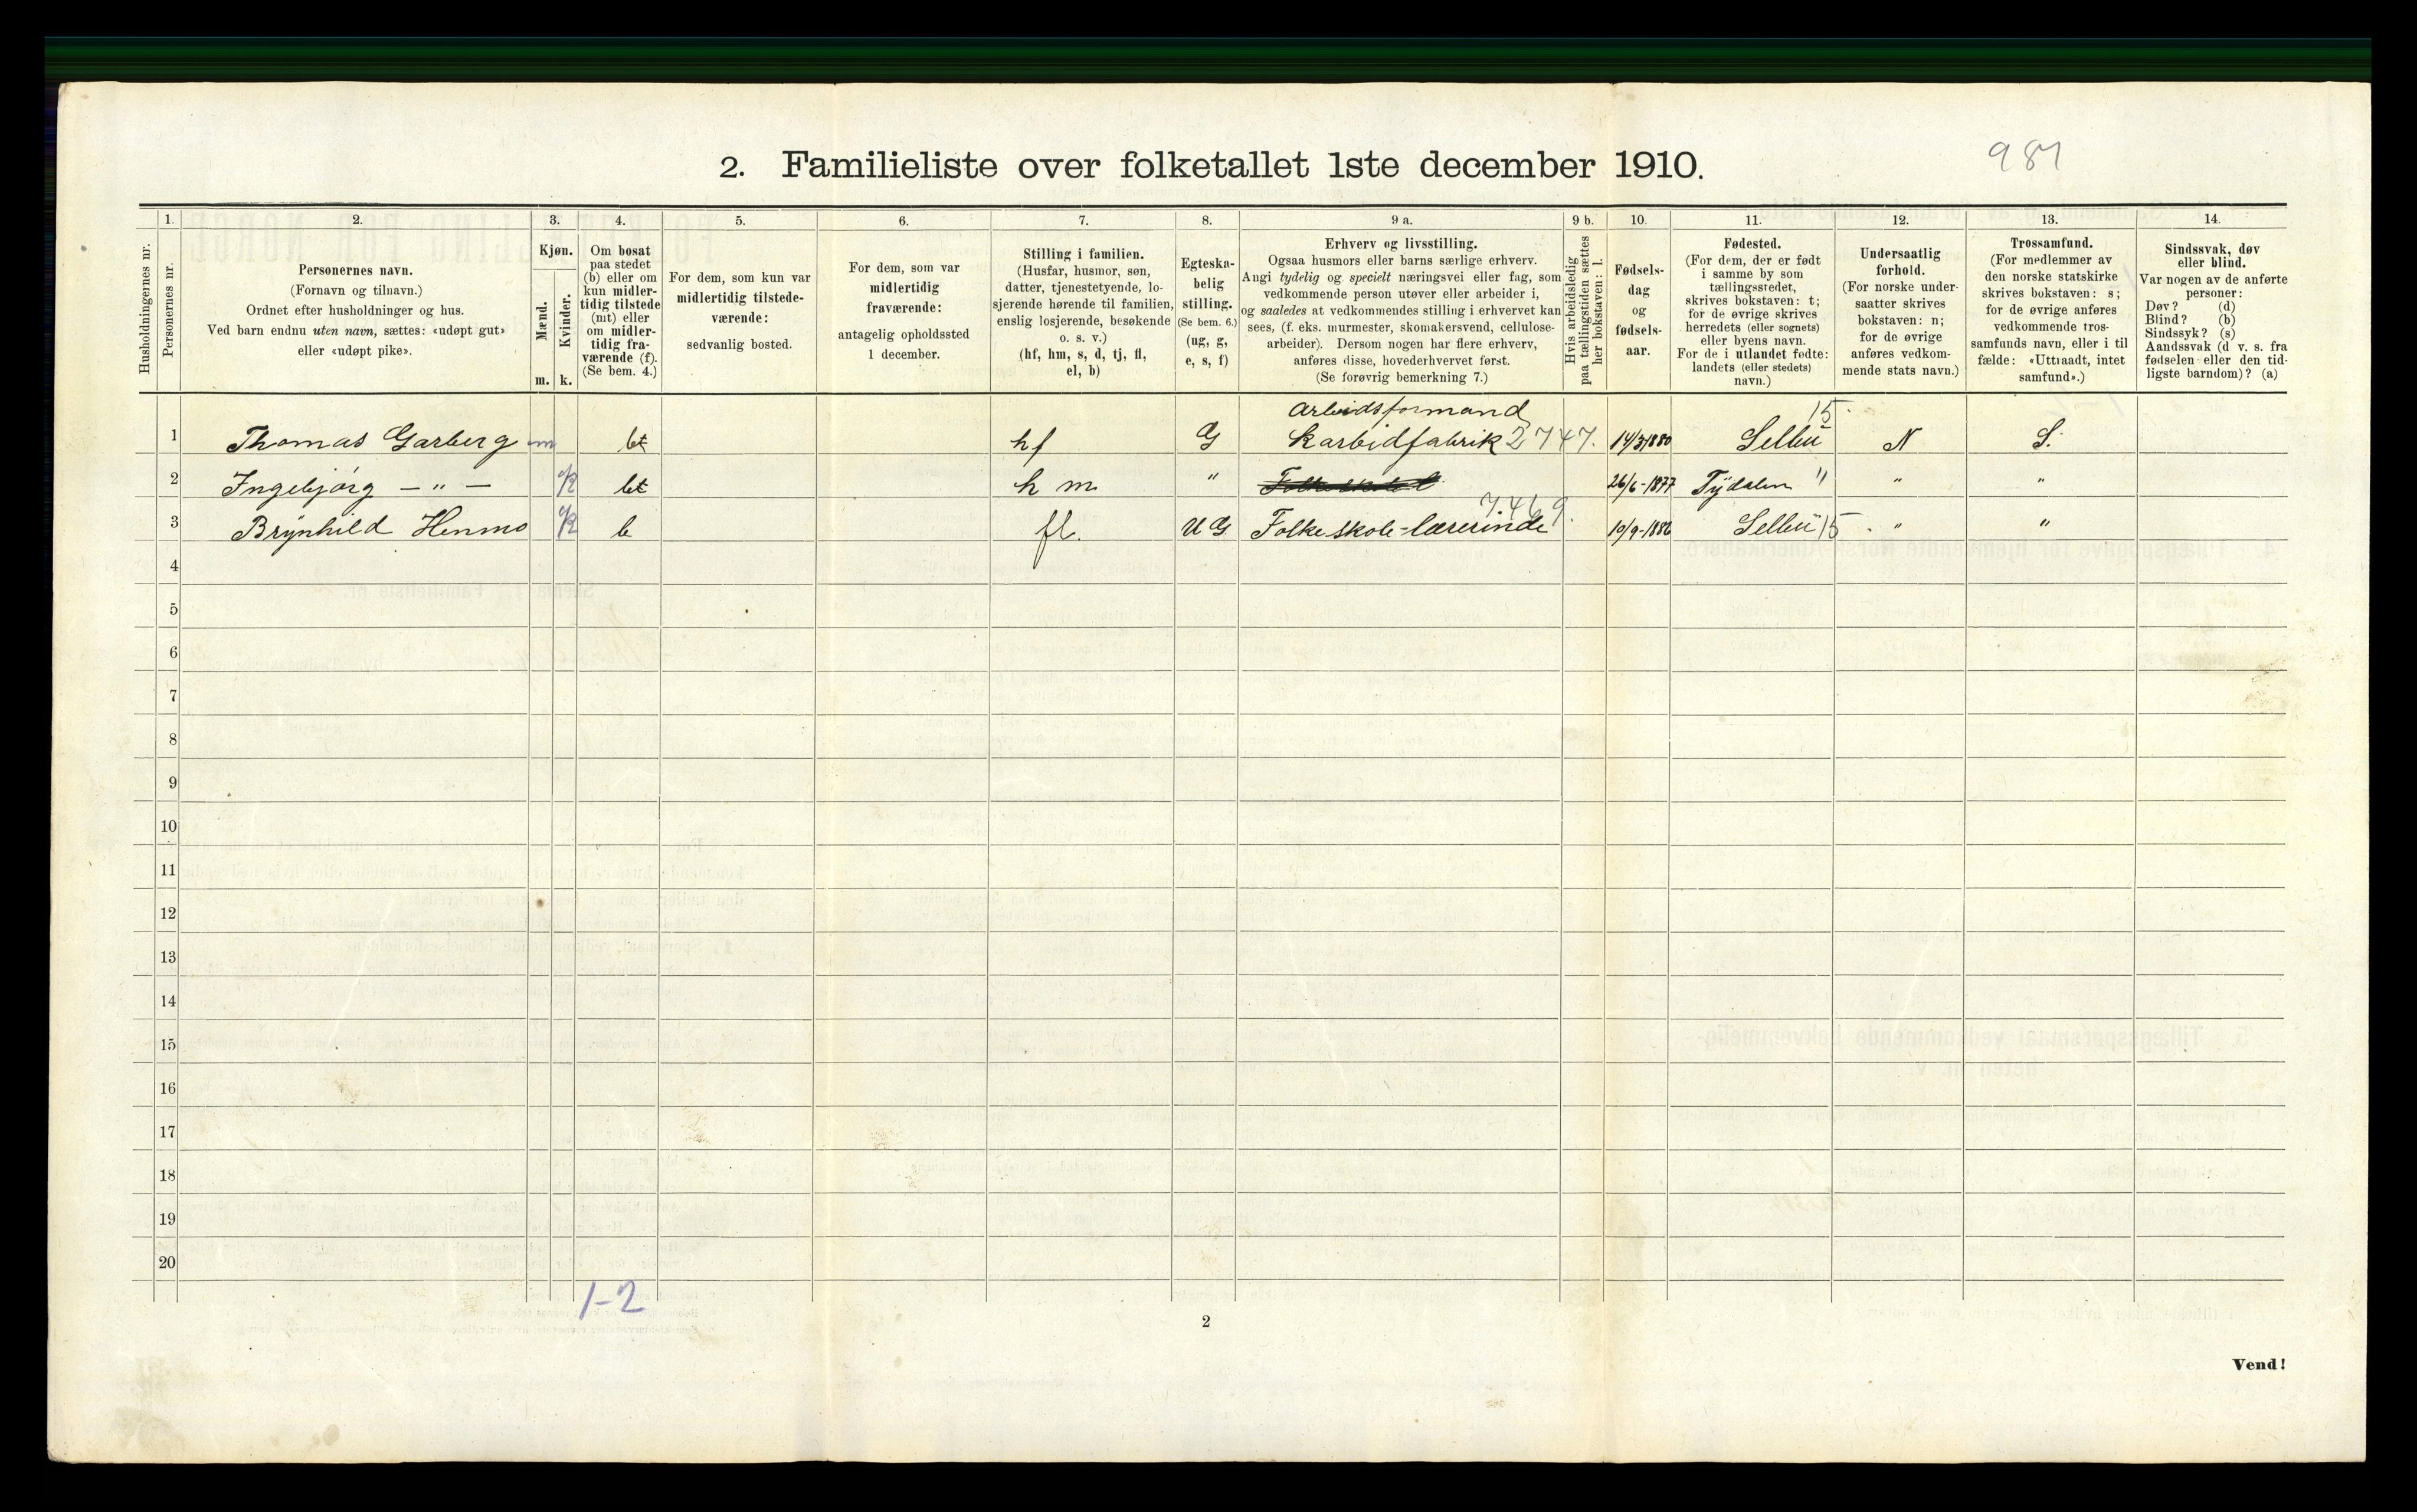 2. Familieliste over folketallet 1ste december 1910.
984
1. 2. 3. 4. 5. 6. 7. 8. 9 a. 9 b. 10. 11. 12. 13. 14.
Husholdningernes nr.
Personernes nr.
Personernes navn.
(Fornavn og tilnavn.)
Ordnet efter husholdninger og hus.
Ved barn endnu uten navn, sættes: «udøpt gut»
eller «udøpt pike».
Kjøn.
Mænd.
Kvinder.
m. k.
Om bosat
paa stedet
(b) eller om
kun midler-
tidig tilstede
(mt) eller
om midler-
tidig fra-
værende (f).
(Se bem. 4.)
For dem, som kun var
midlertidig tilstede-
værende:
sedvanlig bosted.
For dem, som var
midlertidig
fraværende:
antagelig opholdssted
1 december.
Stilling i familien.
(Husfar, husmor, søn,
datter, tjenestetyende, lo-
sjerende hørende til familien,
enslig losjerende, besøkende
o. s. v.)
(hf, hm, s, d, tj, fl,
el, b)
Egteska-
belig
stilling.
(Se bem. 6.)
(ug, g,
e, s, f)
Erhverv og livsstilling.
Ogsaa husmors eller barns særlige erhverv.
Angi tydelig og specielt næringsvei eller fag, som
vedkommende person utøver eller arbeider i,
og saaledes at vedkommendes stilling i erhvervet kan
sees, (f. eks. murmester, skomakersvend, cellulose-
arbeider). Dersom nogen har flere erhverv,
anføres disse, hovederhvervet først.
(Se forøvrig bemerkning 7.)
Hvis arbeidsledig
paa tællingstiden sættes
her bokstaven: l.
Fødsels-
dag
og
fødsels-
aar.
Fødested.
(For dem, der er født
i samme by som
tællingsstedet,
skrives bokstaven: t;
for de øvrige skrives
herredets (eller sognets)
eller byens navn.
For de i utlandet fødte:
landets (eller stedets)
navn.)
Undersaatlig
forhold.
(For norske under-
saatter skrives
bokstaven: n;
for de øvrige
anføres vedkom-
mende stats navn.)
Trossamfund.
(For medlemmer av
den norske statskirke
skrives bokstaven: s;
for de øvrige anføres
vedkommende tros-
samfunds navn, eller i til
fælde: «Uttraadt, intet
samfund».)
Sindssvak, døv
eller blind.
Var nogen av de anførte
personer:
Døv? (d)
Blind? (b)
Sindssyk? (s)
Aandssvak (d v. s. fra
fødselen eller den tid-
ligste barndom)? (a)
Arbeidsformand 15
1 Thomas Garberg m bt hf G Karbidfabrik 2747. 14/3 1880 Selbu N S.
2 Ingebjørg — " — k bt h m " 26/6-1877 Tydalen " " "
7469.
3 Brynhild Henmo k b fl. UG Folkeskole-lærerinde 10/9-1886 Selbu 15. " "
4
5
6
7
8
9
10
11
12
13
14
15
16
17
18
19
20
1-2
2
Vend!